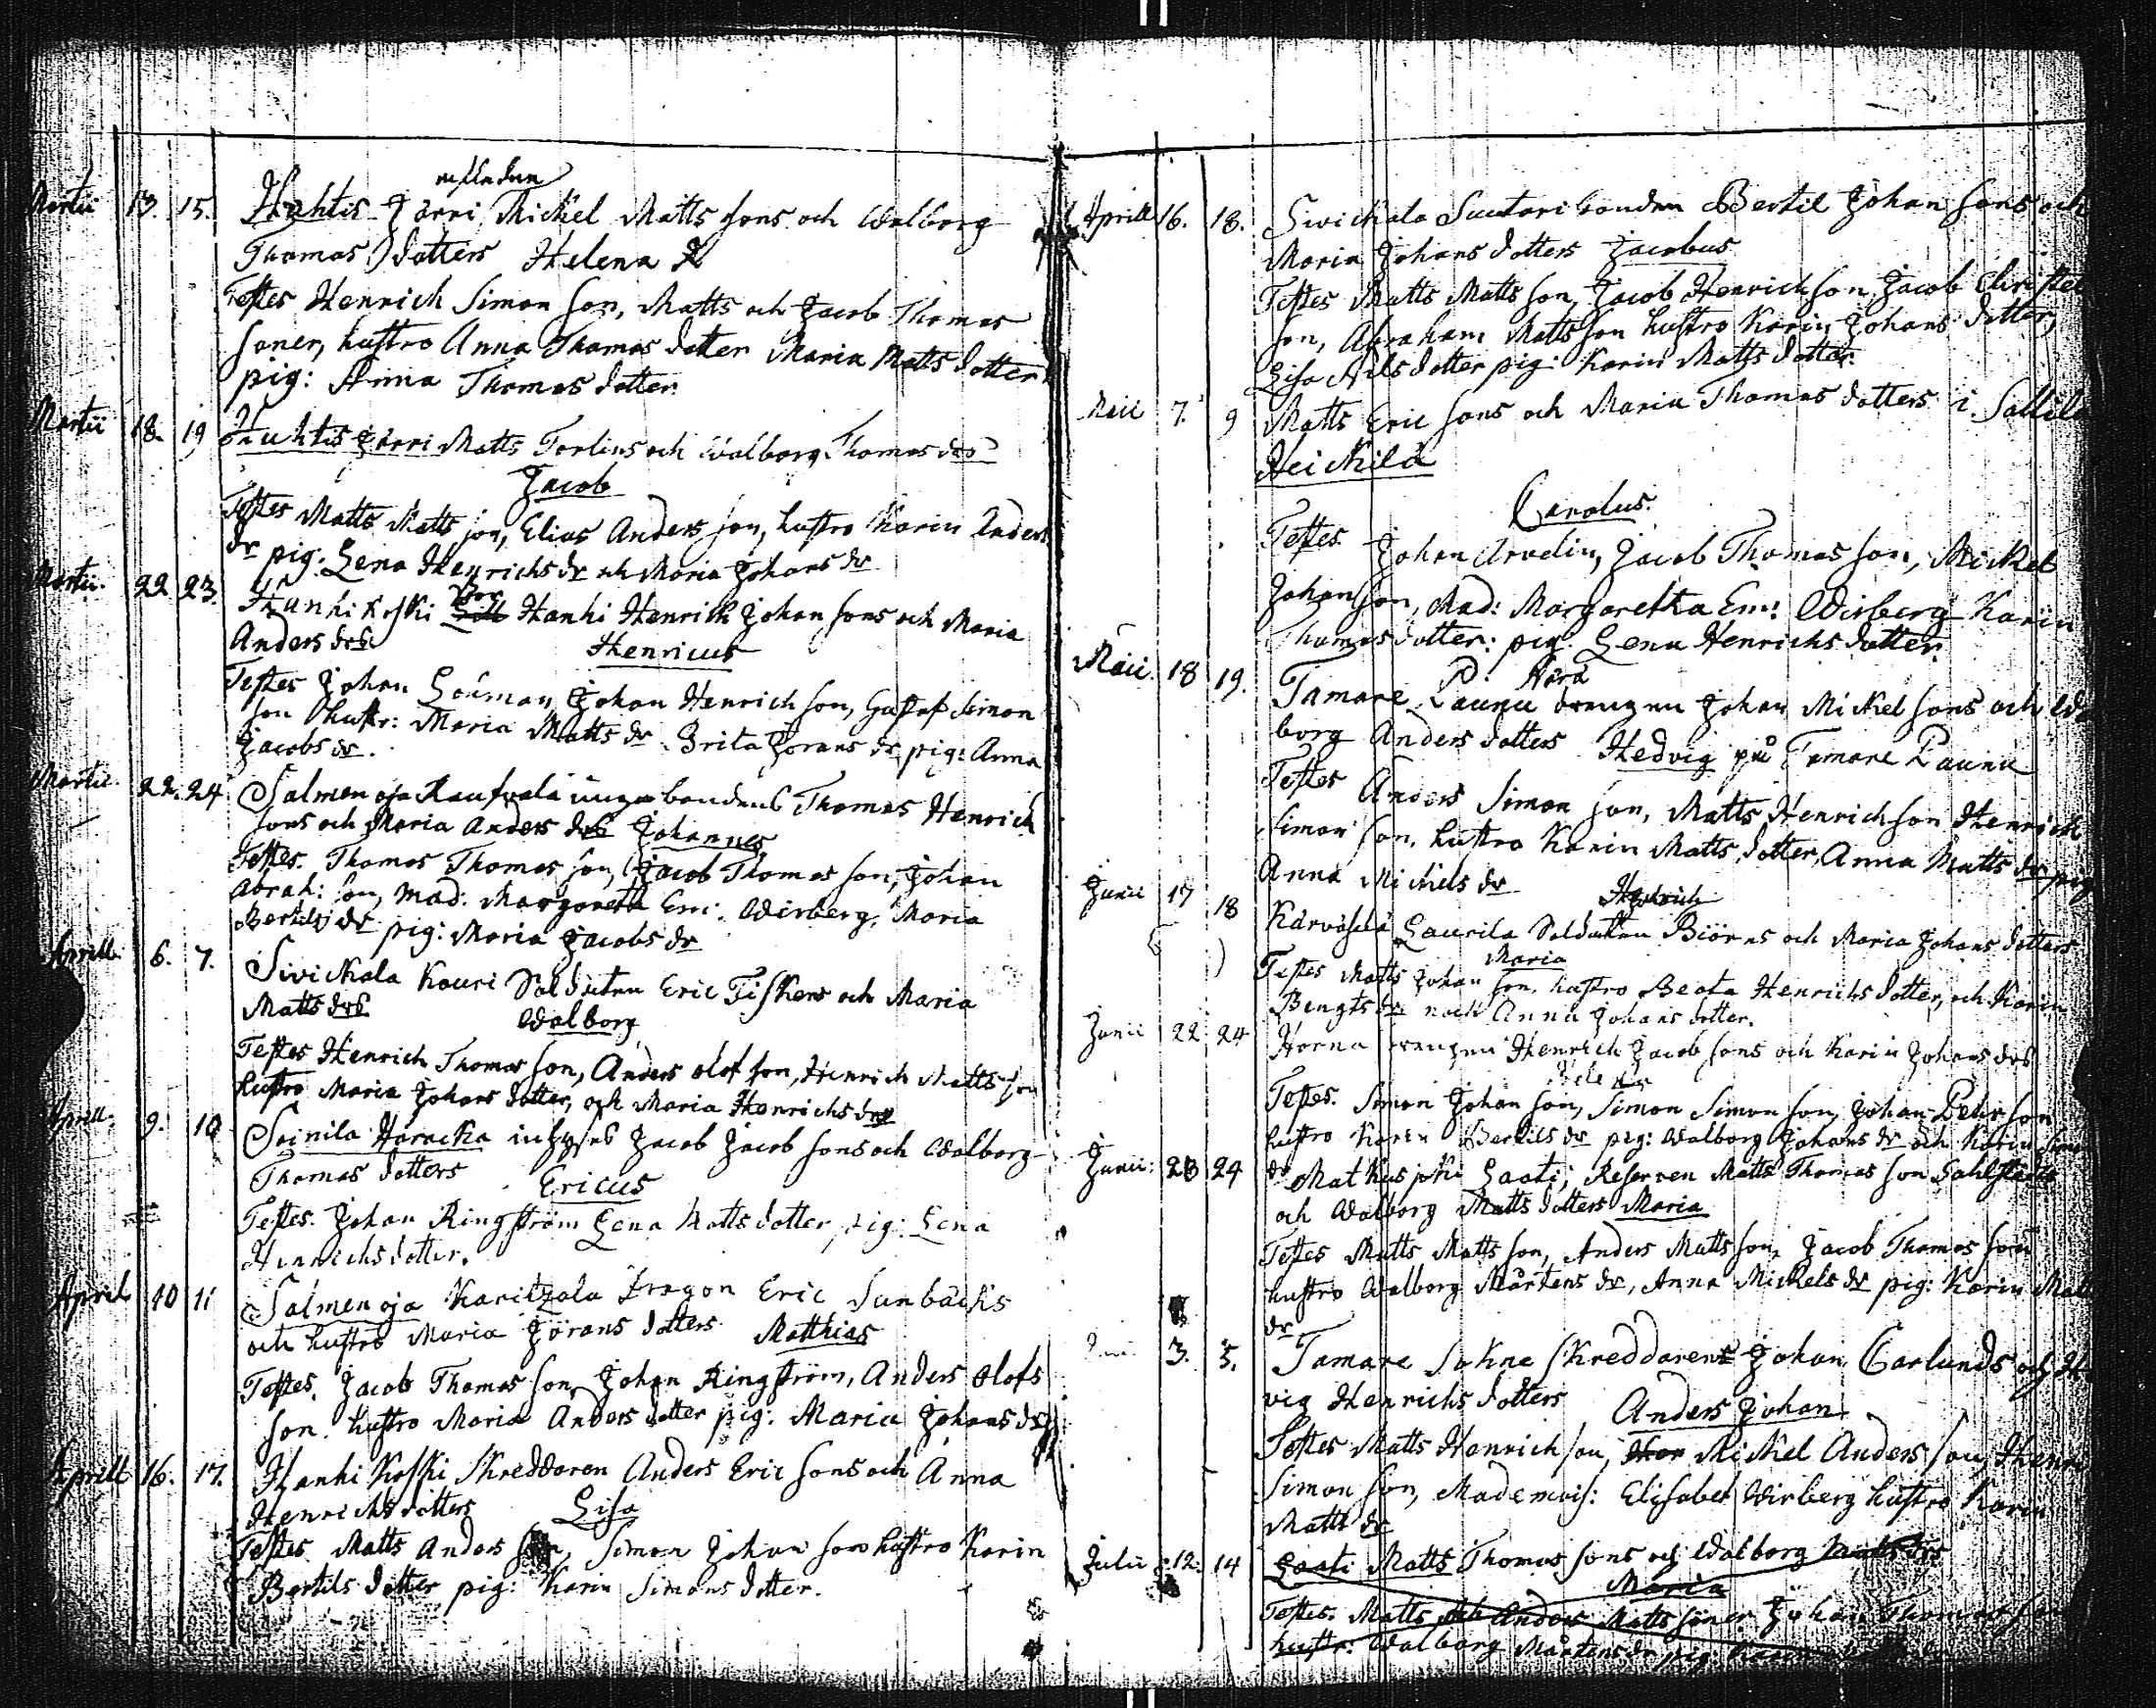 Martii 13. 15. Huhtis Jörri Mickel Matts sons och Walborg
Thomas dotters Helena
Testes Henrich Simon son, Matts och Jacob Thomas
soner, hustro Anna Thomas dotter Maria Matts dotter
pig: Anna Thomas dotter
Martii 18. 19 Huhtis Jörri Matts Torlins och Walborg Thomas drs
Jacob
Testes Matts Matts son, Elias Anders son, hustro Karin Anders
dr pig: Lena Henrichs dr och Maria Johans dr
Martii 22 23. Hanhi koski Hanhi Henrich Johan sons och Maria
Anders drs Henricus
Testes Johan Johan Henrich son, Gustaf Simon
son hustr: Maria Matts dr. Brita Jörans dr pig: Anna
Jacobs dr.
Martii 22. 24 Salmenoja Raufvala unga bondens Thomas Henrich
sons och Maria Anders drs Johannes
Testes. Thomas Thomas son, Jacob Thomas son, Johan
Abrah: son, Mad: Margareta Em: Wirberg, Maria
Bertils dr pig: Maria Jacobs dr
Aprill 6. 7. Sivickala Kouri Soldaten Eric Fiskers och Maria
Matts drs Walborg
Testes Henrich Thomas son, Anders Olof son, Henrich Matts son
hustro Maria Johans dotter, och Maria Henrichs dr
Aprill. 9. 10 Soinila Haracka inhyses Jacob Jacob sons och Walborg
Thomas dotters Ericus
Testes. Johan Ringström Lena Matts dotter pig: Lena
Henrichs dotter.
April 10 11 Salmenoja Karitzala Dragon Eric Sunbäcks
och hustro Maria Jörans dotters Matthias
Testes. Jacob Thomas son, Johan Ringström, Anders Olofs
son. hustro Maria Anders dotter pig: Maria Johans dr
Aprill 16. 17. Hanhi Koski Skreddaren Anders Eric sons och Anna
Henrichs dotters Lisa
Testes Matts Anders Simon Johan son hustro Karin
Bertils dotter pig: Karin Simons dotter.
Aprill 16. 18. Swickala Suutari bonden Bertil Johan sons och
Maria Johans dotters Jacobus
Testes Matts Matts son, Jacob Henrich son, Jacob Christer
son, Abraham Matts son hustro Karin Johans dotter,
Lisa Nils dotter pig: Karin Matts dotter.
Maii 7. 9 Matts Eric sons och Maria Thomas dotters i
Heickilä
Carolus.
Testes Johan Arvelin, Jacob Thomas son, Mickel
Johan son, Mad: Margaretha Em: Wirberg Karin
Thomas dotter: pig. Lena Henrichs dotter.
Maii 18 19. Tamare Paunu drengen Johan Mickel sons och
borg Anders dotters Hedvig på Tamare Paunu
Testes Anders Simon son, Matts Henrich son Henrich
Simon son, hustro Karin Matts dotter, Anna Matts dr pig
Anna Mickels dr
Junii 17 18 Kärväselä Laurila Soldaten Biörns och Maria Johans dotters
Maria
Testes Matts Johan son, hustro Beata Henrichs dotter, och Karin
Bengts dr och Anna Johans dotter.
Junii 22 24 Horna drengen Henrich Jacob sons och Karin Johans drs
Helena
Testes. Simon Johan son, Simon Simon son, Johan Pehr son
hustro Karin Bertils dr pig: Walborg Johans dr och Karin
dr
Junii: 23 24 Matkusjoki Laati, Reserven Matts Thomas son
och Walborg Matts dotters Maria
Testes Matts Matts son, Anders Matts son, Jacob Thomas son
hustro Walborg Mårtens dr, Anna Mickels dr pig: Karin
dr
3. 5. Tamare Sukne Skreddarens Johan Carlunds och
vig Henrichs dotters Anders Johan
Testes Matts Henrich son, Mickel Anders son,
Simon son, Mademois: Elisabet Wirberg hustro Karin
Matts dr
Julii 12. 14 Laati Matts Thomas sons och Walborg Matts drs
Maria
Testes. Matts och Anders Matts söner Johan Thomas
hustr: Walborg Mårtens dr pig: